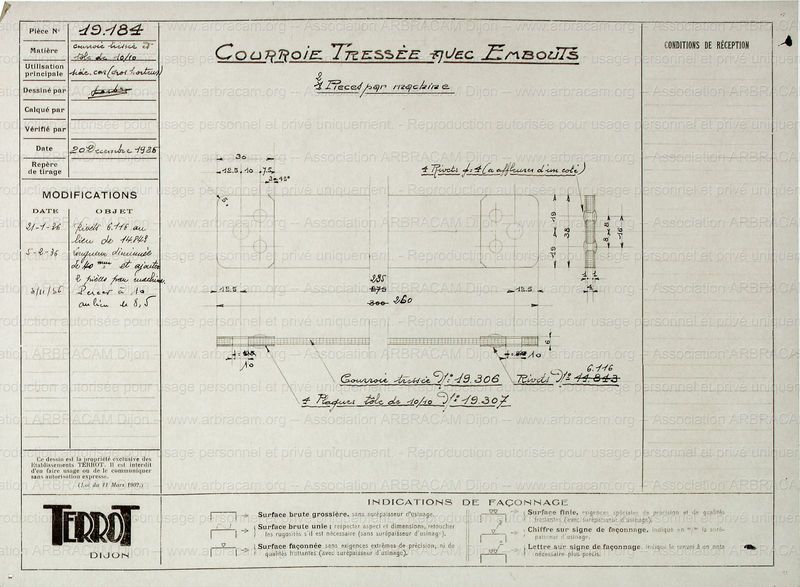 Pièce N° 19.184
Matière courroie tressée et tôle de 10/10
Utilisation principale
Dessiné par
Calqué par
Vérifié par
Date 20 Decembre 1935
Repère de tirage
MODIFICATIONS
DATE OBJET
21-1-36 Rivets 6.116 au
lieu de 14.843
5-2-36 longueur diminuée
de 40 mm et ajouté
2 pièces par machine
percer à 10
au lieu de 8,5
Ce dessin est la propriété exclusive des
Etablissements TERROT. Il est interdit
d'en faire usage ou de le communiquer
sans autorisation expresse.
(Loi du 11 Mars 1902.)
TERROT
DIJON
COURROIE TRESSÉE AVEC EMBOUTS
2 Pieces par machine
CONDITIONS DE RÉCEPTION
30
12.5 10 7.5
4 Rivets (a affleurer d'un coté)
19 19 38
8 8 16
235
275
12.5 12.5
300 260
6
10 10
Courroie tressée N° 19.306
6.116
Rivets N° 14.843
4 Plaques tôle de 10/10 N° 19.307
INDICATIONS DE FAÇONNAGE
Surface brute grossière, sans surépaisseur d'usinage.
Surface brute unie; respecter aspect et dimensions, retoucher
les rugosités s'il est nécessaire (sans surépaisseur d'usinage).
Surface façonnée sans exigences extrêmes de précision, ni de
qualités frottantes (avec surépaisseur d'usinage).
Surface finie, exigences spéciales de précision et de qualités
frottantes (avec surépaisseur d'usinage).
Chiffre sur signe de façonnage, indique en m/m la surépaisseur d'usinage.
Lettre sur signe de façonnage, indique le renvoi à un note
nécessaire plus précis.
www.arbracam.org – Association ARBRACAM Dijon – Reproduction autorisée pour usage personnel et privé uniquement.